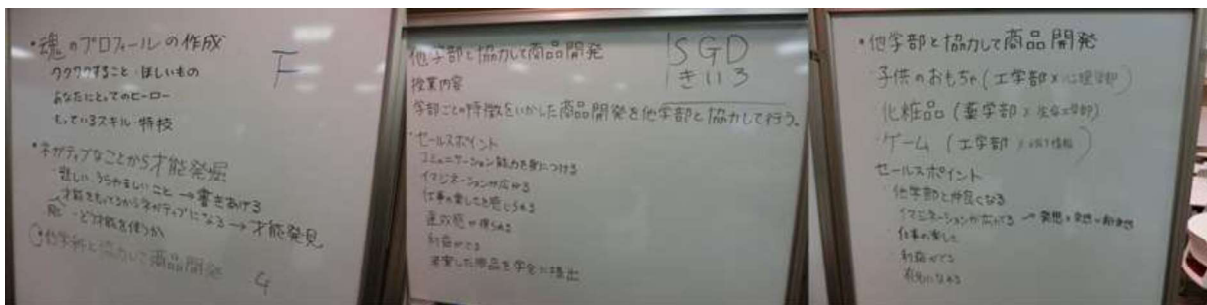 ・魂のプロフィールの作成
ワクワクすること・ほしいもの
あなたにとってのヒーロー
もっているスキル・特技
F
・ネガティブなことから才能発掘
悲しい、うらやましいこと→書きあげる
才能をもってるからネガティブになる→才能発見
・どう才能を使うか
他学部と協力して商品開発
他学部と協力して商品開発
SGD
きいろ
授業内容
学部ごとの特徴をいかした商品開発を他学部と協力して行う。
・セールスポイント
コミュニケーション能力を身につける
イマジネーションが広がる
仕事の楽しさを感じられる
達成感が得られる
利益がでる
考案した商品を学会に提出
・他学部と協力して商品開発
子供のおもちゃ(工学部×心理学部)
化粧品(薬学部×生命工学部)
ゲーム(工学部×
セールスポイント
・他学部と仲良くなる
イマジネーションが広がる→発想
・仕事の楽しさ
・利益がでる